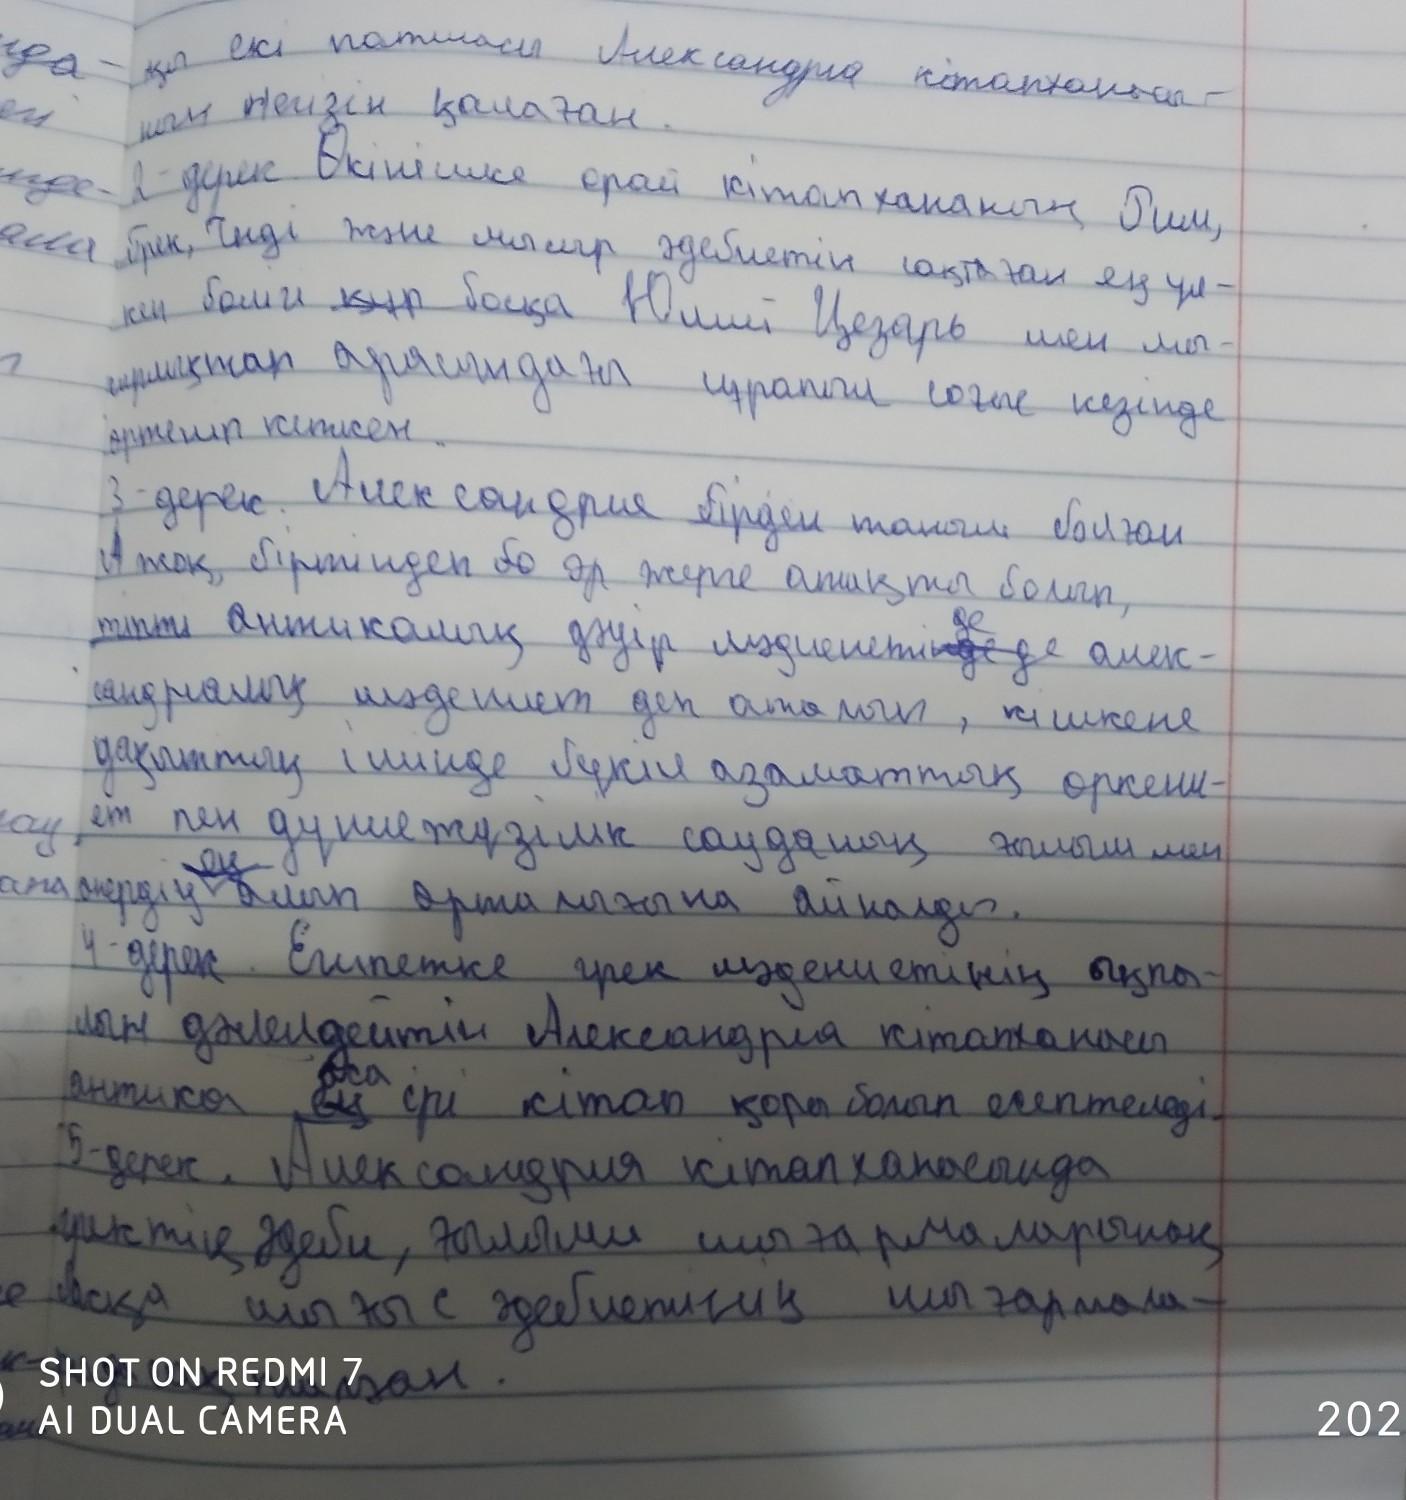 қы екі патшасы Александрия кітапханасы-
ның негізін қалаған.
2-дерек Өкінішке орай кітапхананың Рим,
Грек, Үнді және мысыр әдебиетін сақтаған ең үл-
кен бөлігі босқа Юлий Цезарь мен мы-
сырлықтар арасындағы сұрапыл соғыс кезінде
өртеніп кеткен.
3-дерек. Александрия бірден танымал болған
жоқ, біртіндеп әр жерге атақты болып,
тіпті антикалық дәуір мәдениетінде де алек-
сандриялық мәдениет деп аталып, кішкене
уақыттың ішінде бүкіл азаматтық өркени-
ет пен дүниежүзілік сауданың ғылым мен
өнердің алып орталығына айналды.
4-дерек. Египетке грек мәдениетінің ықпа-
лын дәлелдейтін Александрия кітапханасы
антика аса ірі кітап қоры болып есептеледі.
5-дерек. Александрия кітапханасында
гректің әдеби, ғылыми шығармаларынан
басқа шығыс әдебиетінің шығармала-
SHOT ON REDMI 7
AI DUAL CAMERA
202